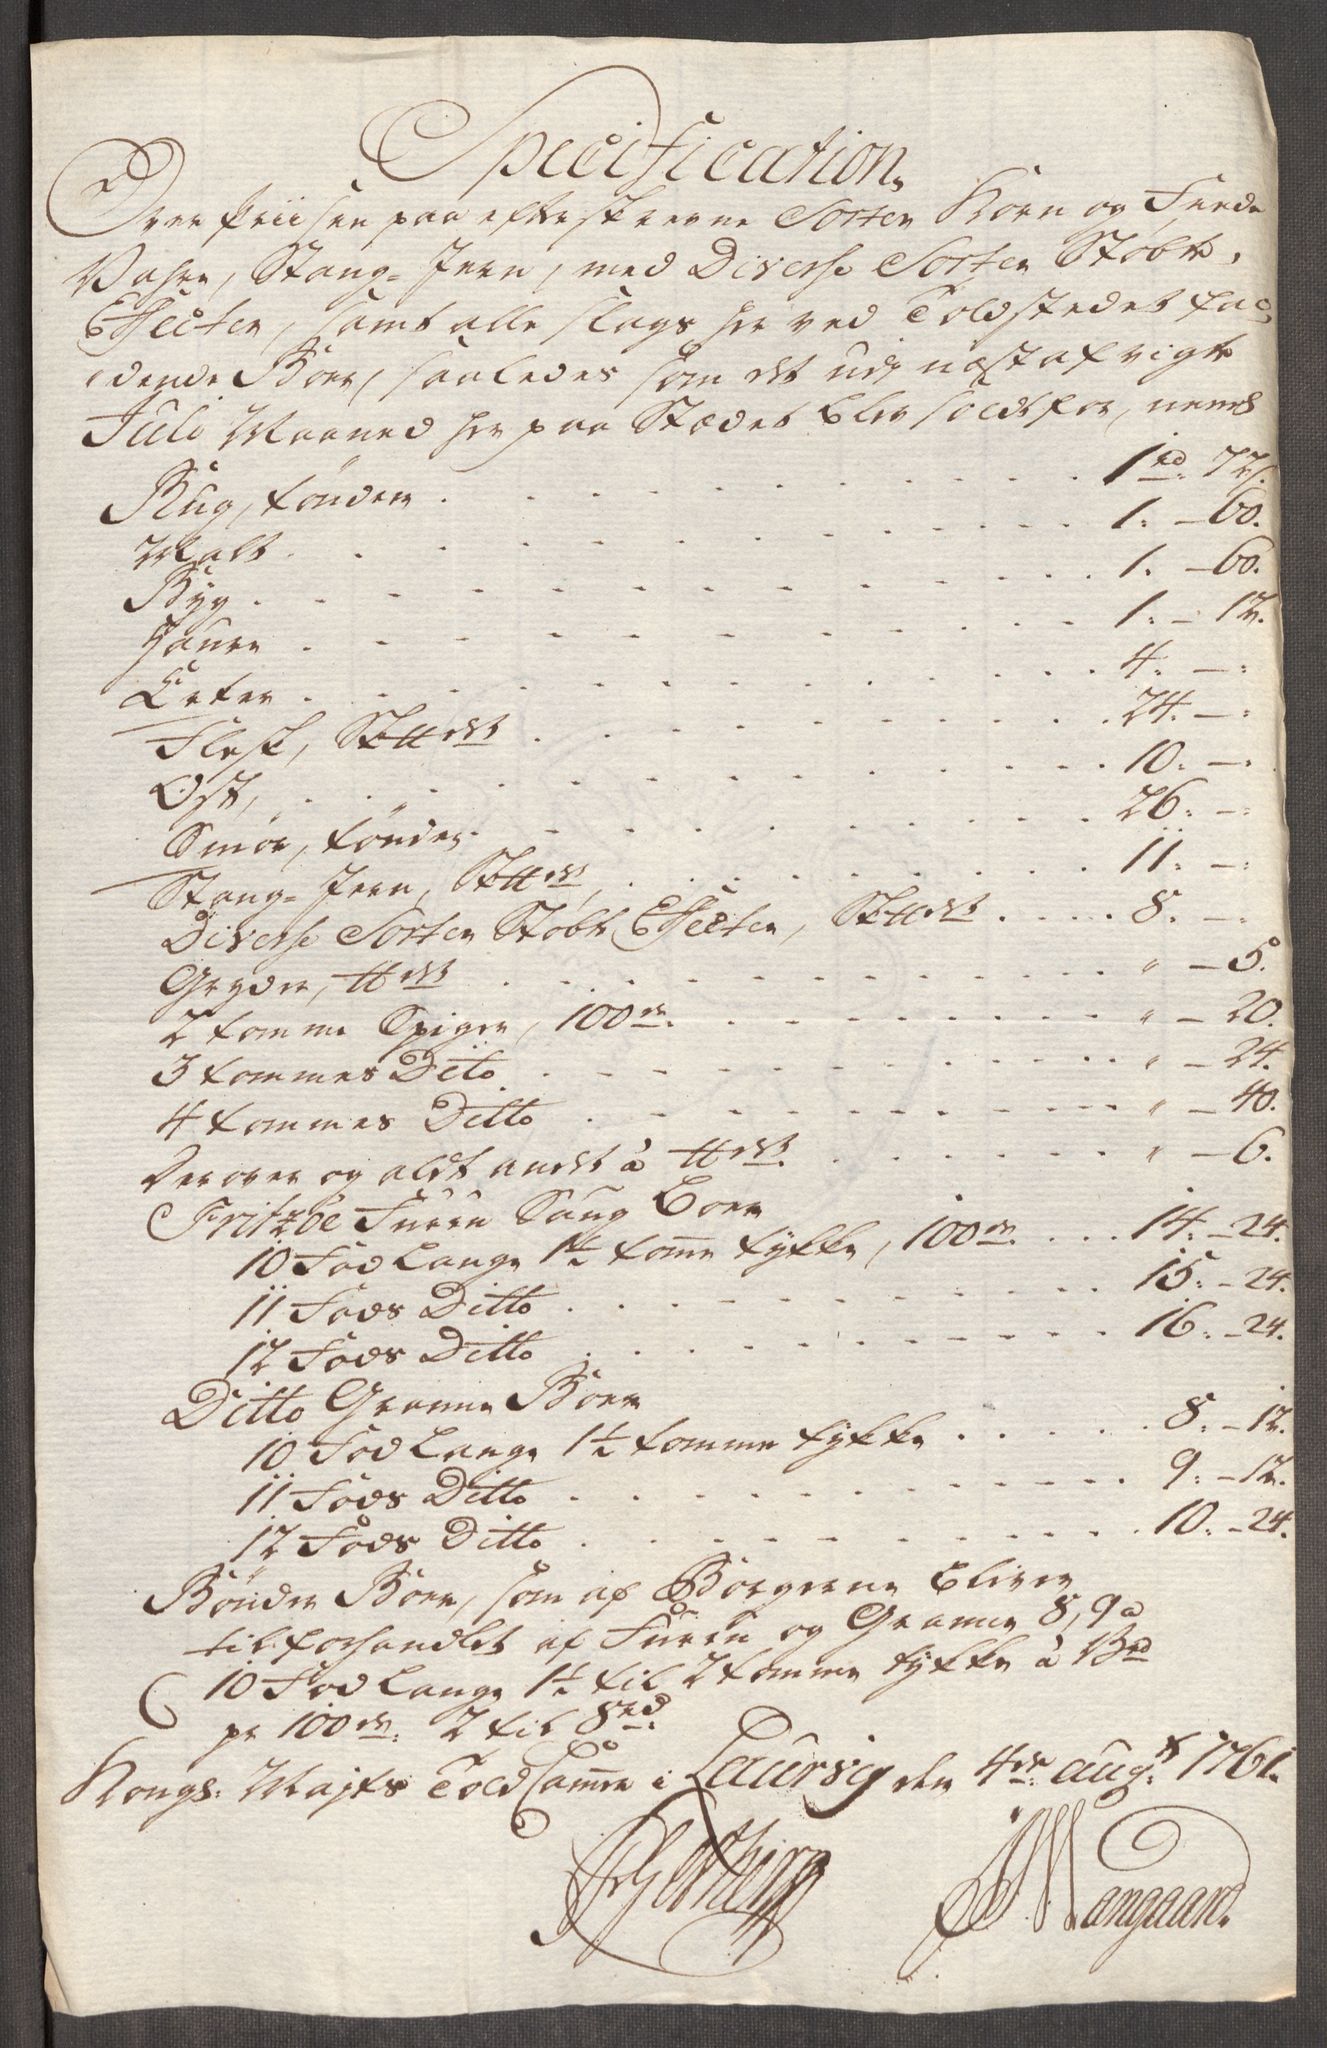 Specification
Over Priisen paa efterskrevne Sorter Korn og Feede
Vahre, Stang-Jern, med Diverse Sorter Støbte
Effecter, samt alle slags her ved Toldstedet fal-
dende Borr, saaledes som det udi næst afvigte
Juli Maaned her paa Stædet blev soldt for, neml
Rug, tønden . . . 1 rd 72 s.
Malt . . . 1. - 60.
Byg . . . 1. - 60.
Haure . . . 1. - 12.
Erter . . . 4. - :
Flesk, Sk℔det . . . 24. - :
Ost, . . . 10. - :
Smør, tønder . . . 26. - :
Stang-Jern, Sk℔det . . . 11. - :
Diverse Sorter Støbte Effecter, Sk℔det . . . 8. -
Gryder, ℔det . . . " - 5.
2 tomme Spiger, 100de . . . " - 20.
3 tommes Dito . . . " - 24.
4 tommes Ditto . . . " - 40.
Derover og aldt andet à ℔det . . . " - 6.
Fritzøe Furru Saug Borr
10 Fod Lange 1½ tomme tykke, 100de . . . 14. - 24.
11 Fods Ditto . . . 15. - 24.
12 Fods Ditto . . . 16. - 24.
Ditto Grann Borr
10 Fod Lange 1½ tomme tykke . . . 8. - 12.
11 Fods Ditto . . . 9. - 12.
12 Fods Ditto . . . 10. - 24.
Bønder Borr, som af Borgerne bliver
tilforhandlet af Furru og Grann 8, 9 a
10 Fod Lange 1½ til 2 tomme tykke à
pr 100de 2 til 8 rd
Kongs: Majts Told Cammer i Laurvig den 4de Augt 1761.